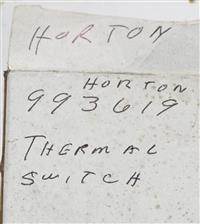 HORTON
HORTON
993619
THERMAL
SWITCH